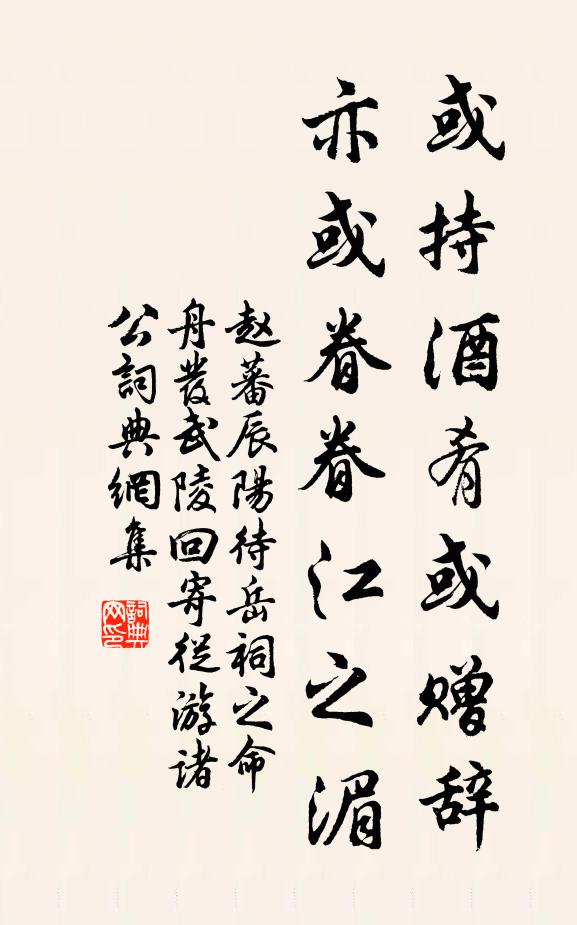 或持酒肴或赠辞
亦或眷眷江之湄
赵蕃辰陽待岳祠之命
舟發武陵回寄從游诸
公詞典網集
詞典
网印